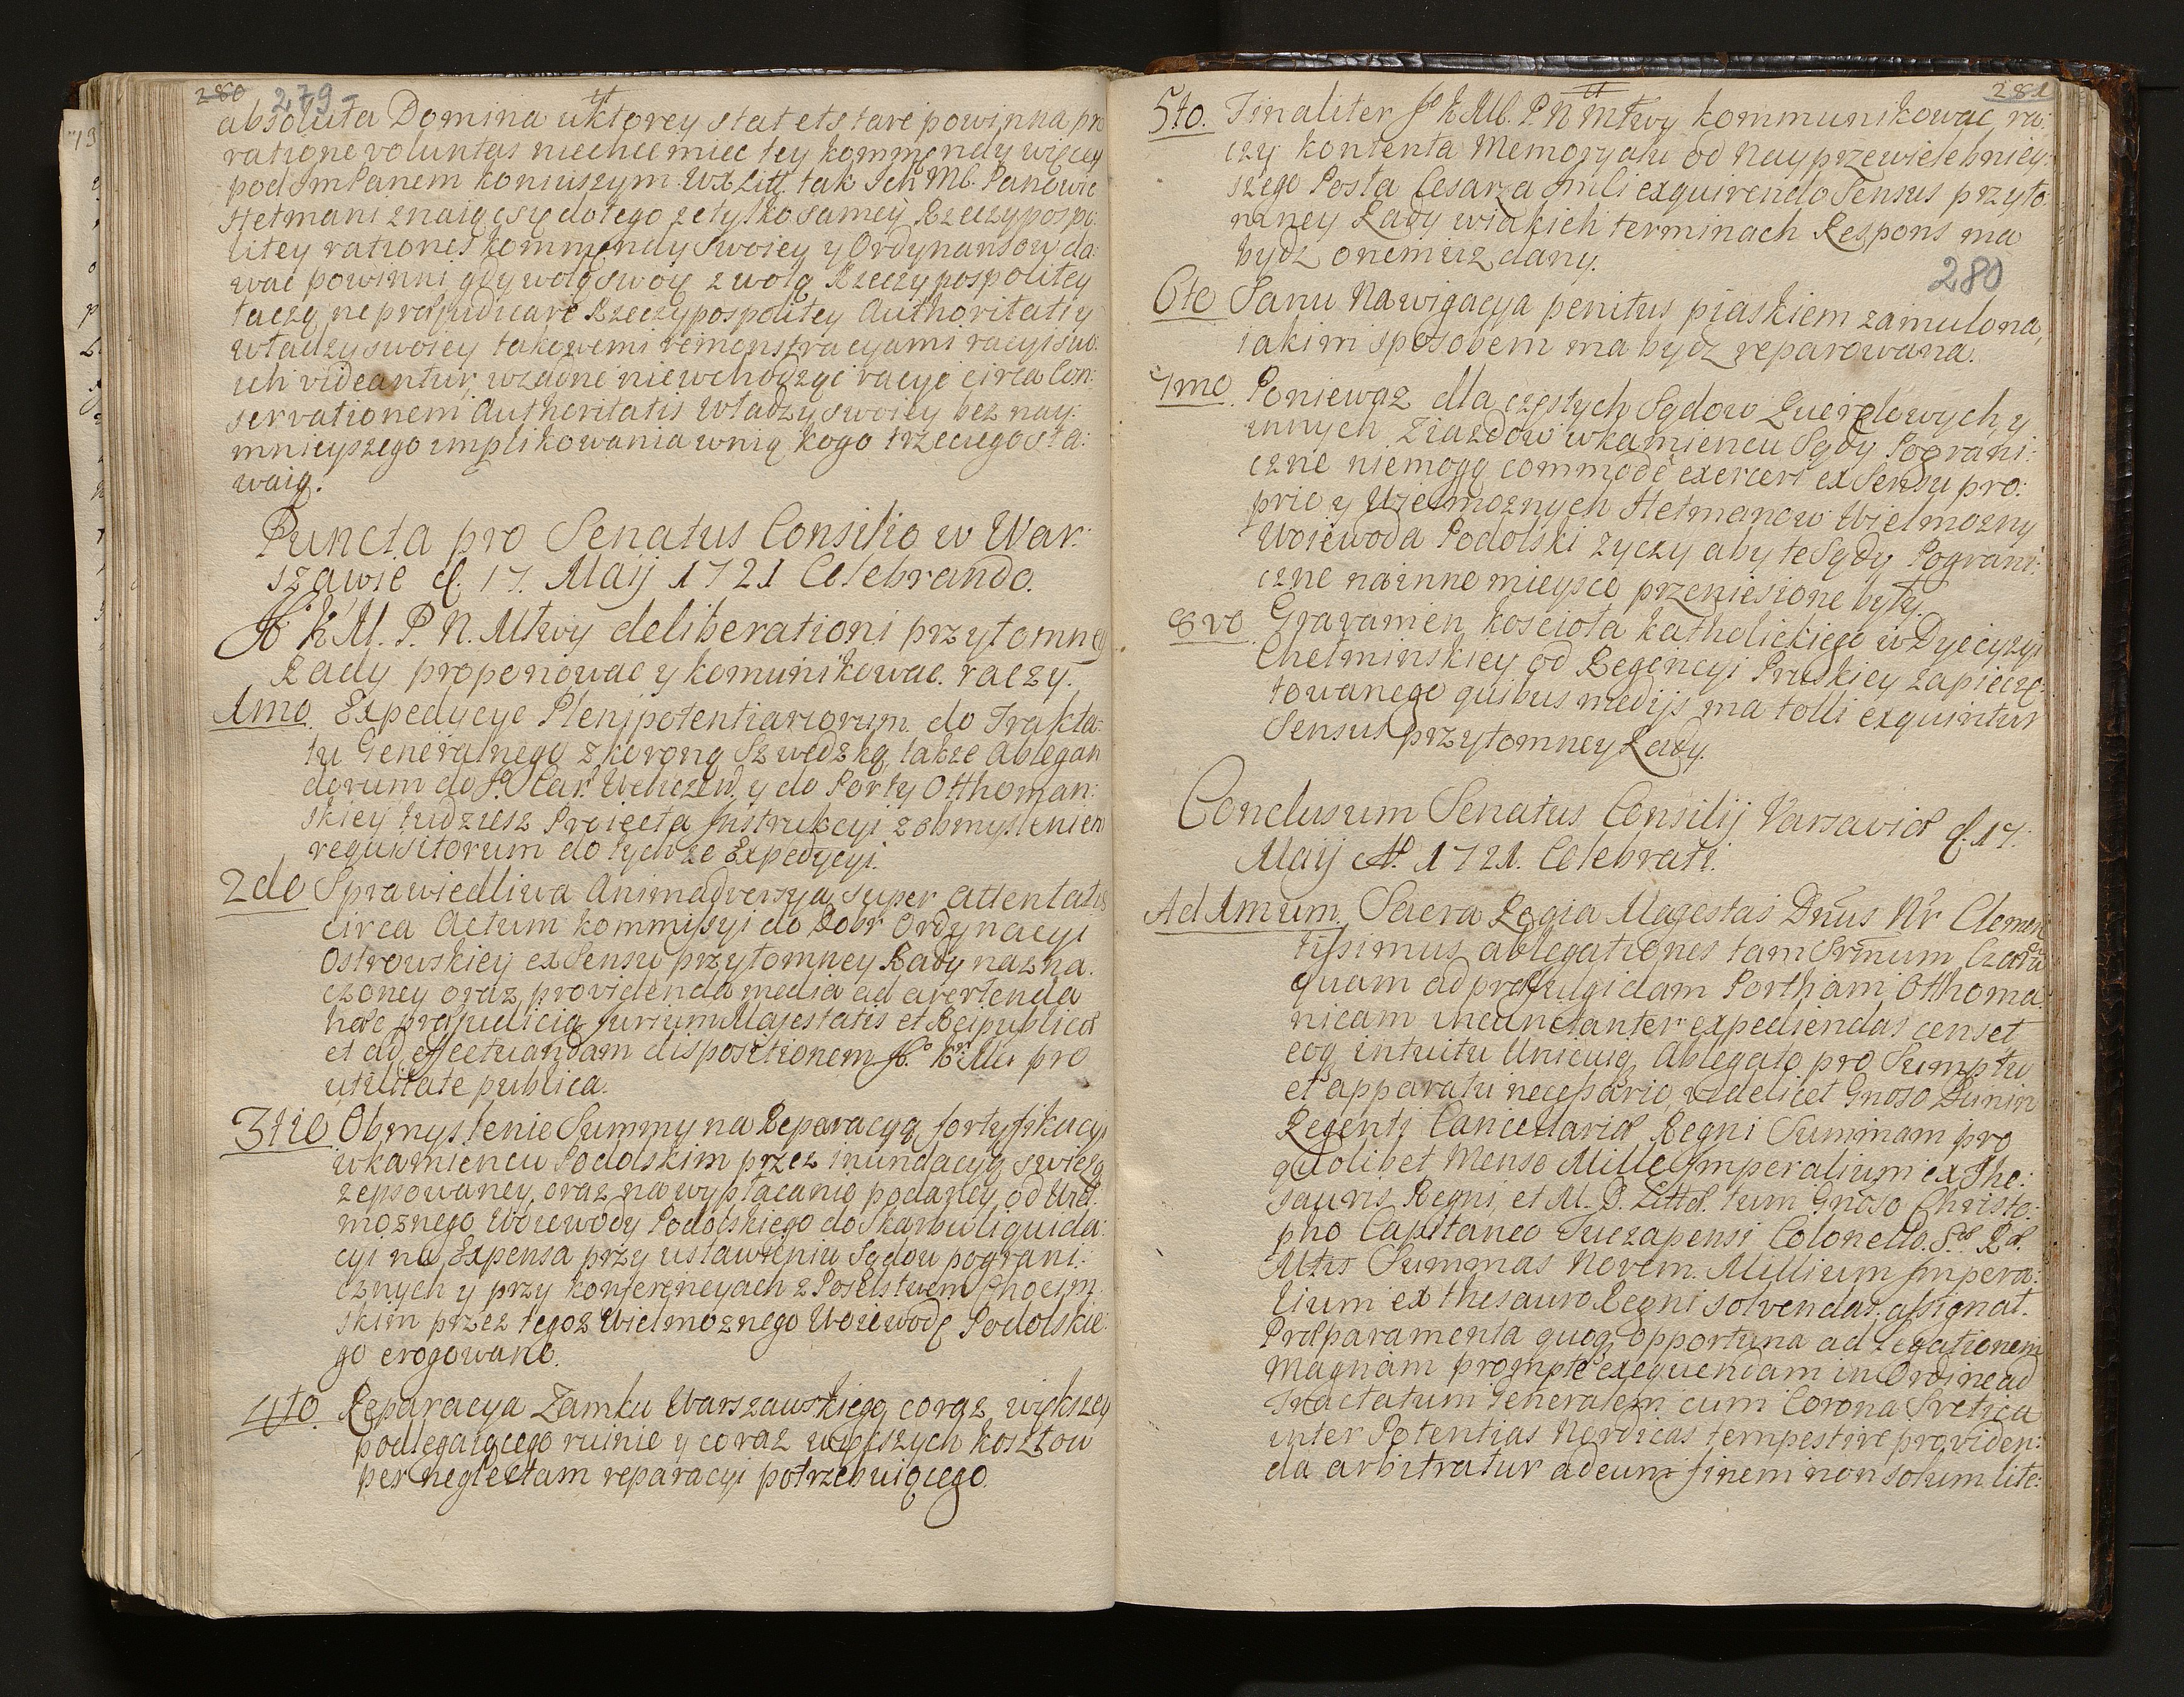 280 279
absoluta Domina uktorey stat et stare powinna pro
ratione voluntas niechce miec tey kommendy więcey
pod JmPanem Koniuszym WXLitt. tak Ich Mć. Panowie
Hetmani znaią się do tego ze tylko samey Rzeczypospo:
litey rationes kommendy swoiey y Ordynansow da:
wac powinni gdy wolą swoię z wolą Rzeczypospolitey
łączą, ne præjudicare Rzeczypospolitey Authoritati y
władzy swoiey takowemi remonstracyami racyi swo:
ich videantur, wzadne niewchodząc racye circa Con:
servationem Authoritatis władzy swoiey bez nay:
mnieyszego implikowania wnią kogo trzeciego sta:
waią.
Puncta pro Senatus Consilio w War:
szawie d. 17. Maij 1721 Celebrando.
Jo K M. P. N. Młwy deliberationi przytomney
Rady proponowac y komunikowac raczy.
1mo. Expedycye Plenipotentiariorum do Trakta:
tu Generalnego z koroną Szwedzką, także Ablegan
dorum do Jo. Car. Wielicz. y do Porty Otthoman:
skiey tudziesz Proiecta Instrukcyi z obmyslenien
requisitorum do tychze Expedycyi.
2do Sprawiedliwa Animadversya super attentatis
circa Actum kommissyi do Dobr Ordynacyi
Ostrowskiey ex Sensu przytomney Rady nazna:
czoney oraz providenda media ad avertenda
hæc præjudicia Jurium Majestatis et Reipublicæ
et ad effectuandam dispositionem Jo. K. Mci pro
utilitate publica.
3tio Obmyslenie Summy na Reparacyą fortyfikacyi
w kamiencu Podolskim przez inundacyą swiezą
zepsowaney, oraz na wypłacanie podaney od Wiel:
moznego Woiewody Podolskiego do Skarbu liquida:
cyi na Expensa przy ustawieniu Sądow pograni:
cznych y przy konferencyach z Poselstwem Chocim
skim przez tegoz Wielmoznego Woiewodę Podolskie:
go erogowane.
4to. Reparacya Zamku Warszawskiego coraz większey
podlegaiącego ruinie y coraz większych kosztow
per neglectam reparacyi potrzebuiącego.
281
5to. Finaliter Jo K Mć. P. N Młwy kommunikowac ra:
czy kontenta Memoryału od Nayprzewielebniey:
szego Posła Cesarza Jmci exquirendo Sensus przyto:
mney Rady wiakich terminach Respons ma
bydz onemusz dany.
280
6to Sanu Nawigacya penitus piaskiem zamulona,
iakim sposobem ma bydz reparowana.
7mo. Poniewaz dla częstych Sądow Querelowych y
innych Ziazdow w kamiencu Sądy Pograni:
czne niemogą commodè exerceri ex Sensu pro:
prio y Wielmoznych Hetmanow Wielmozny
Woiewoda Podolski zyczy aby te Sądy Pograni:
czne na inne mieysce przeniesione były.
8vo. Gravamen kosciola katholickiego w Dyecyzyi
Chełminskiey od Regencyi Pruskiey zapieczę:
towanego quibus medijs ma tolli exquiritur
Sensus przytomney Rady.
Conclusum Senatus Consilij Varsaviæ d. 17.
Maij Ao. 1721. Celebrati.
Ad 1mum. Sacra Regia Magestas Dnus Nr Clemen
tissimus ablegationes tam Srmum Czaru
quam ad præfulgidam Portham Otthoma
nicam incunctanter expediendas censet
eoq intuitu Unicuiq Ablegato pro Sumptu
et apparatu necessario, videlicet Gnoso Dunin
Regenti Cancellariæ Regni Summam pro
quolibet Mense Mille Imperalium ex The:
sauris Regni, et M. D. Littæ. tum Gnoso Christo:
pho Capitaneo Suczapensi Colonello S. Ræ.
Mtis Summas Novem Millium Impera:
lium ex thesauro Regni solvendas assignat.
Præparamenta quoq opportuna ad Legationem
Magnam prompte exequendam in Ordine ad
Tractatum Generalem cum Corona Svetica
inter Potentias Nordicas tempestive providen:
da arbitratur ad eum finem non solum lite: